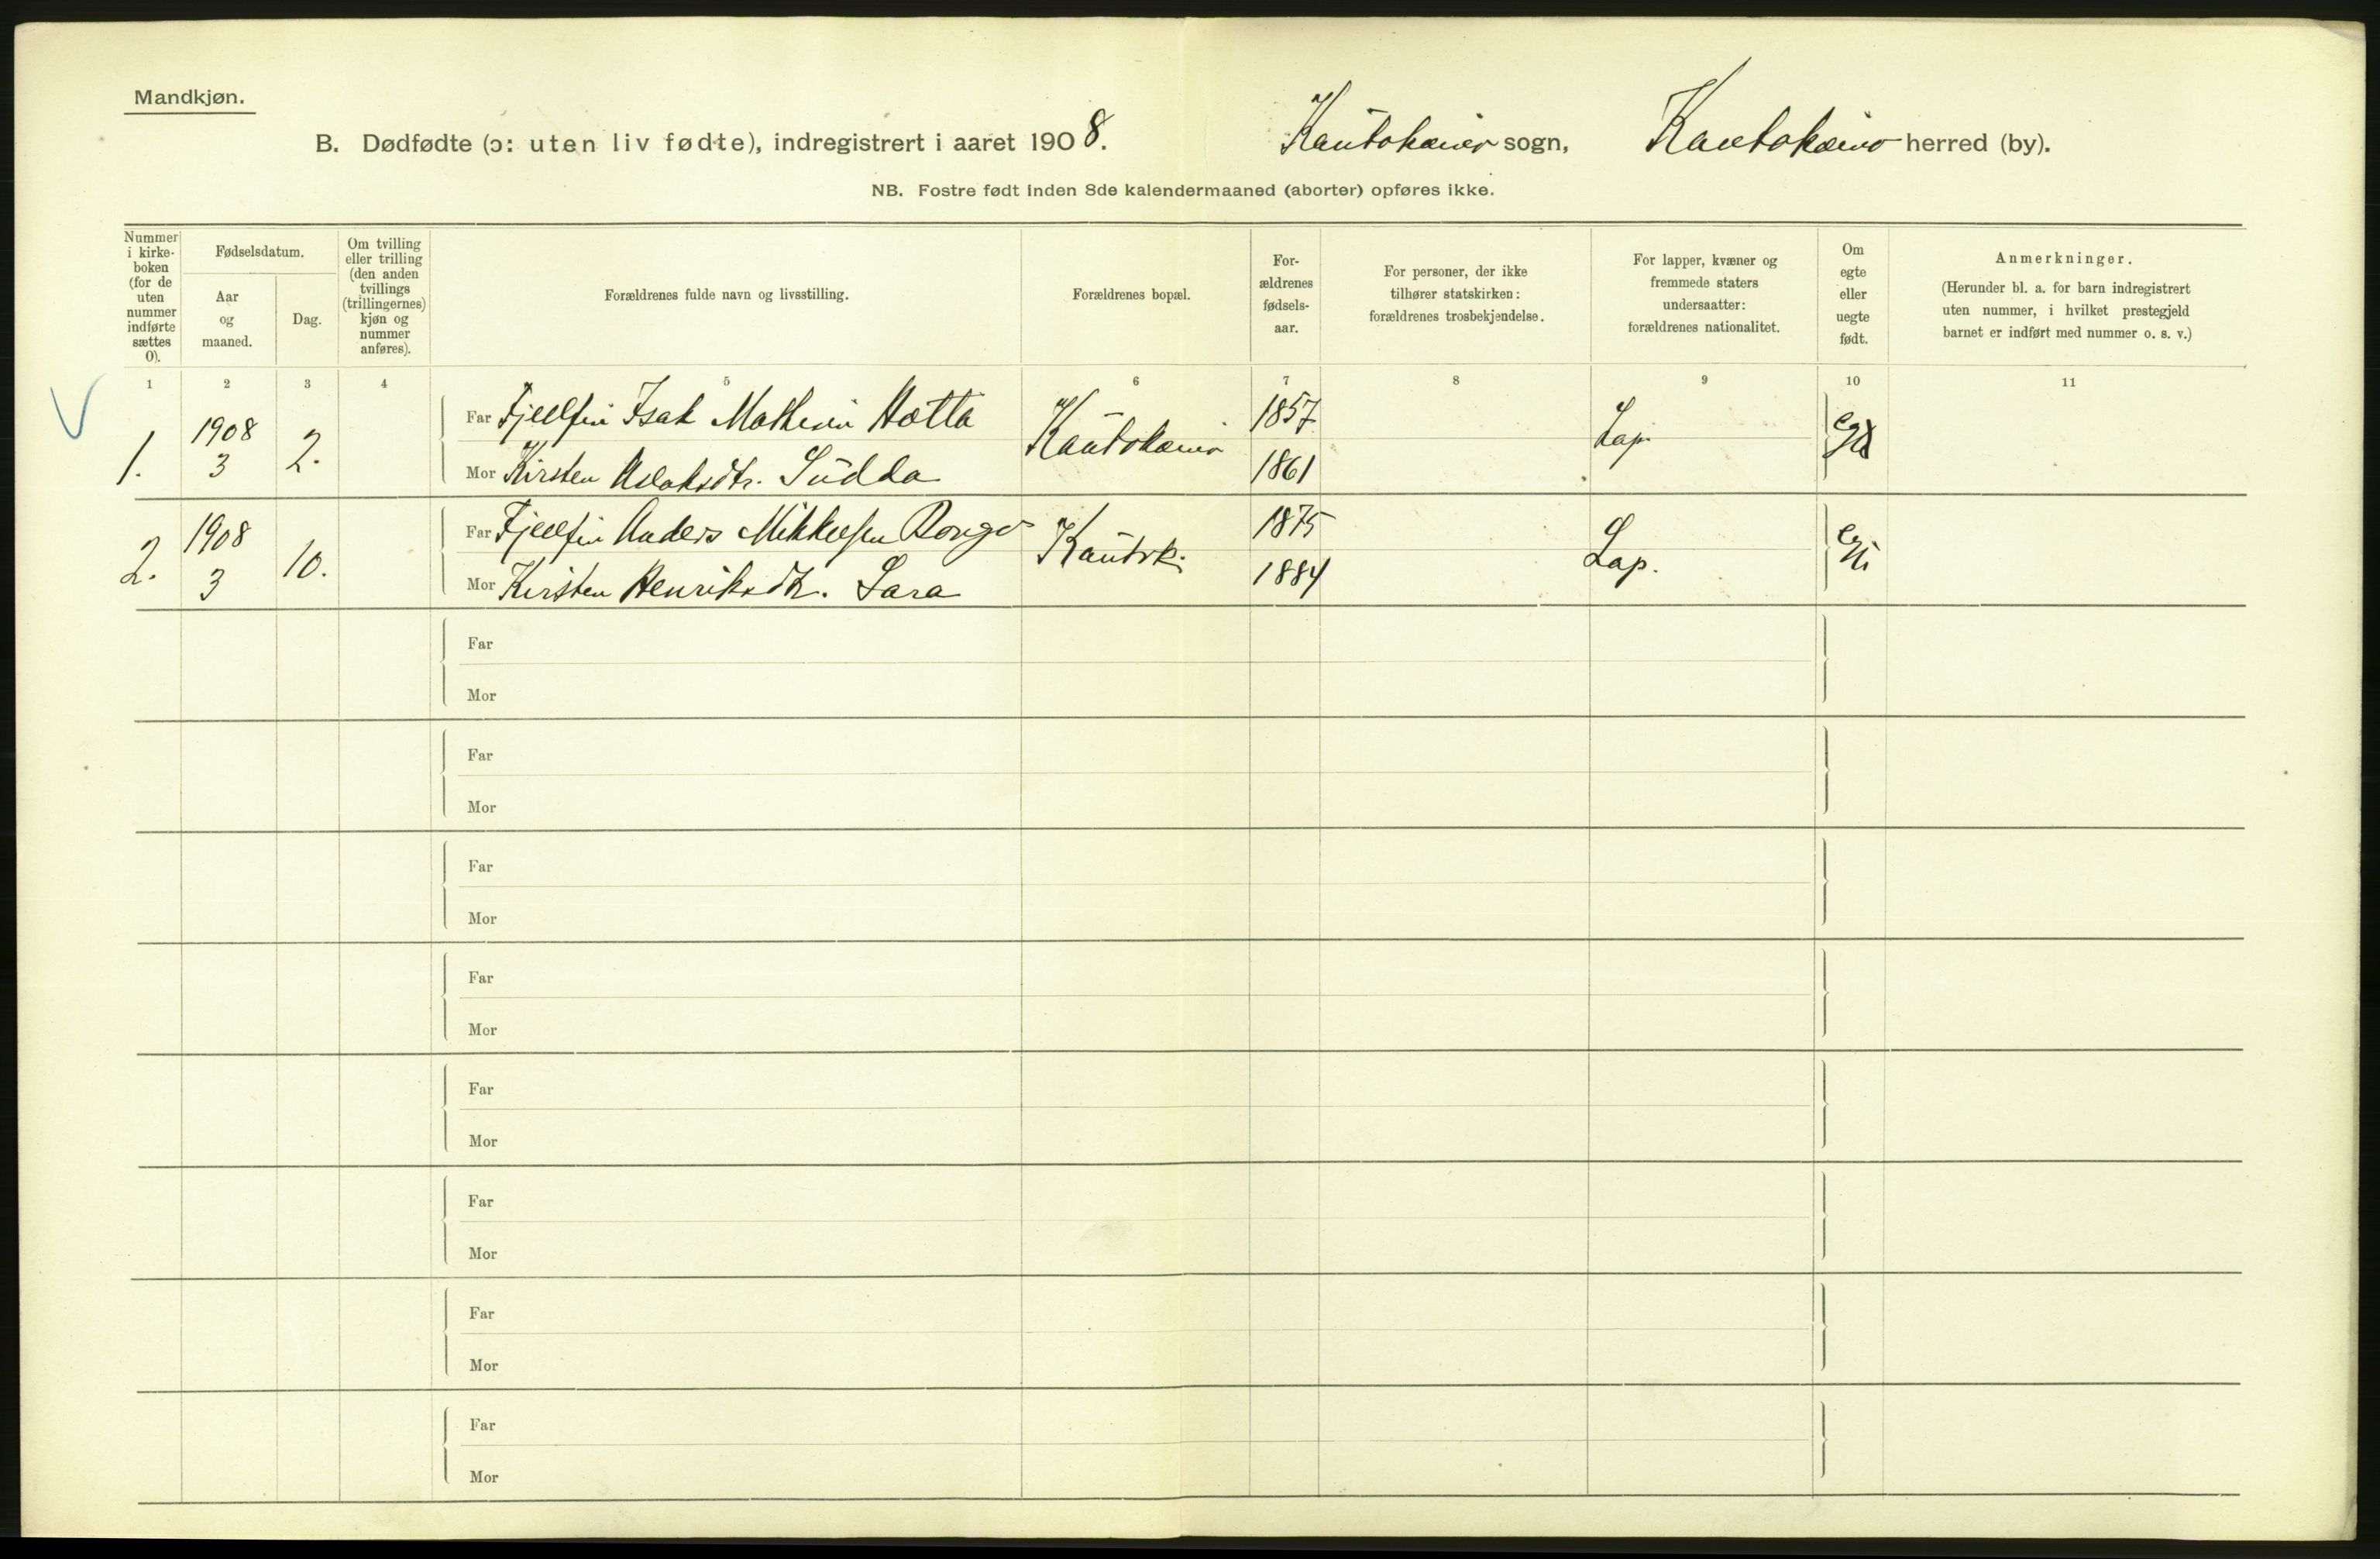 Mandkjøn.
B. Dødfødte (ɔ: uten liv fødte), indregistrert i aaret 1908. Kautokeino sogn, Kautokeino herred (by).
NB. Fostre født inden 8de kalendermaaned (aborter) opføres ikke.
Nummer i kirke-boken (for de uten nummer indførte sættes 0).
Fødselsdatum.
Aar og maaned.
Dag.
Om tvilling eller trilling (den anden tvillings (trillingernes) kjøn og nummer anføres).
Forældrenes fulde navn og livsstilling.
Forældrenes bopæl.
For-ældrenes fødsels-aar.
For personer, der ikke tilhører statskirken: forældrenes trosbekjendelse.
For lapper, kvæner og fremmede staters undersaatter: forældrenes nationalitet.
Om egte eller uegte født.
Anmerkninger.
(Herunder bl. a. for barn indregistrert uten nummer, i hvilket prestegjeld barnet er indført med nummer o. s. v.)
1 2 3 4 5 6 7 8 9 10 11
1. 1908 3 2.
Far Fjellfin Isak Mathisen Hætta Kautokeino 1857 Lap.
Mor Kirsten Aslaksdtr. Sudda 1861
2. 1908 3 10.
Far Fjellfin Anders Mikkelsen Bongo Kautok. 1875 Lap.
Mor Kirsten Henriksdtr. Sara 1884
Far
Mor
Far
Mor
Far
Mor
Far
Mor
Far
Mor
Far
Mor
Far
Mor
Far
Mor